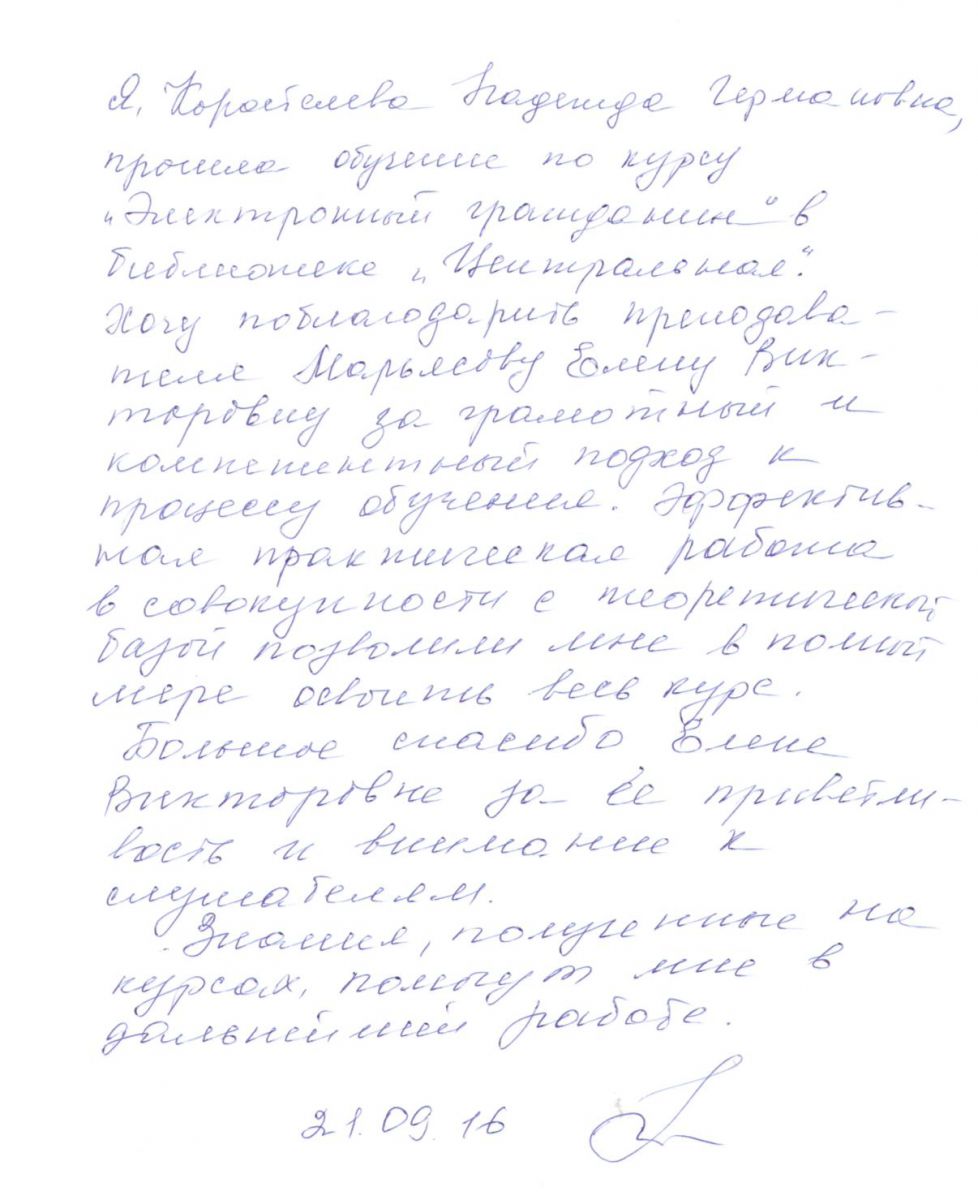 Я, Коростелева Надежда Германовна,
прошла обучение по курсу
„Электронный гражданин“ в
библиотеке „Центральная“.
Хочу поблагодарить преподава-
теля Марьясову Елену Вик-
торовну за грамотный и
компетентный подход к
процессу обучения. Эффектив-
ная практическая работа
в совокупности с теоретической
базой позволили мне в полной
мере освоить весь курс.
Большое спасибо Елене
Викторовне за её приветли-
вость и внимание к
слушателям.
Знания, полученные на
курсах, помогут мне в
дальнейшей работе.
21.09.16